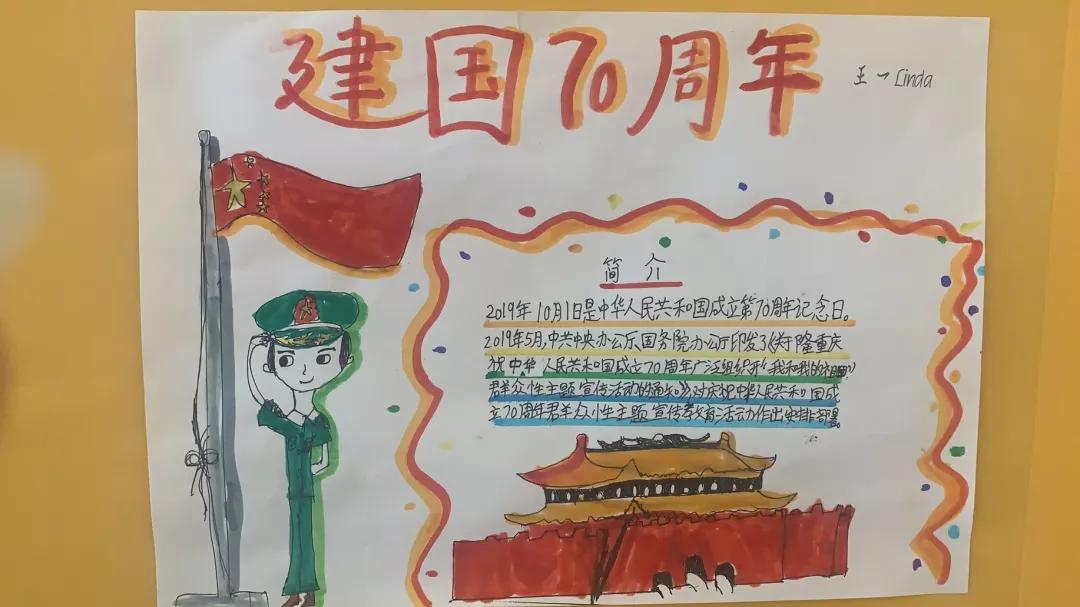 建国70周年
王一 Linda
简介
2019年10月1日是中华人民共和国成立第70周年记念日。
2019年5月,中共中央办公厅、国务院办公厅印发了《关于隆重庆
祝中华人民共和国成立70周年广泛组织开“我和我的祖国”
群众性主题宣传活动的通知》对庆祝中华人民共和国成
立70周年群众性主题宣传教育活动作出安排部署。